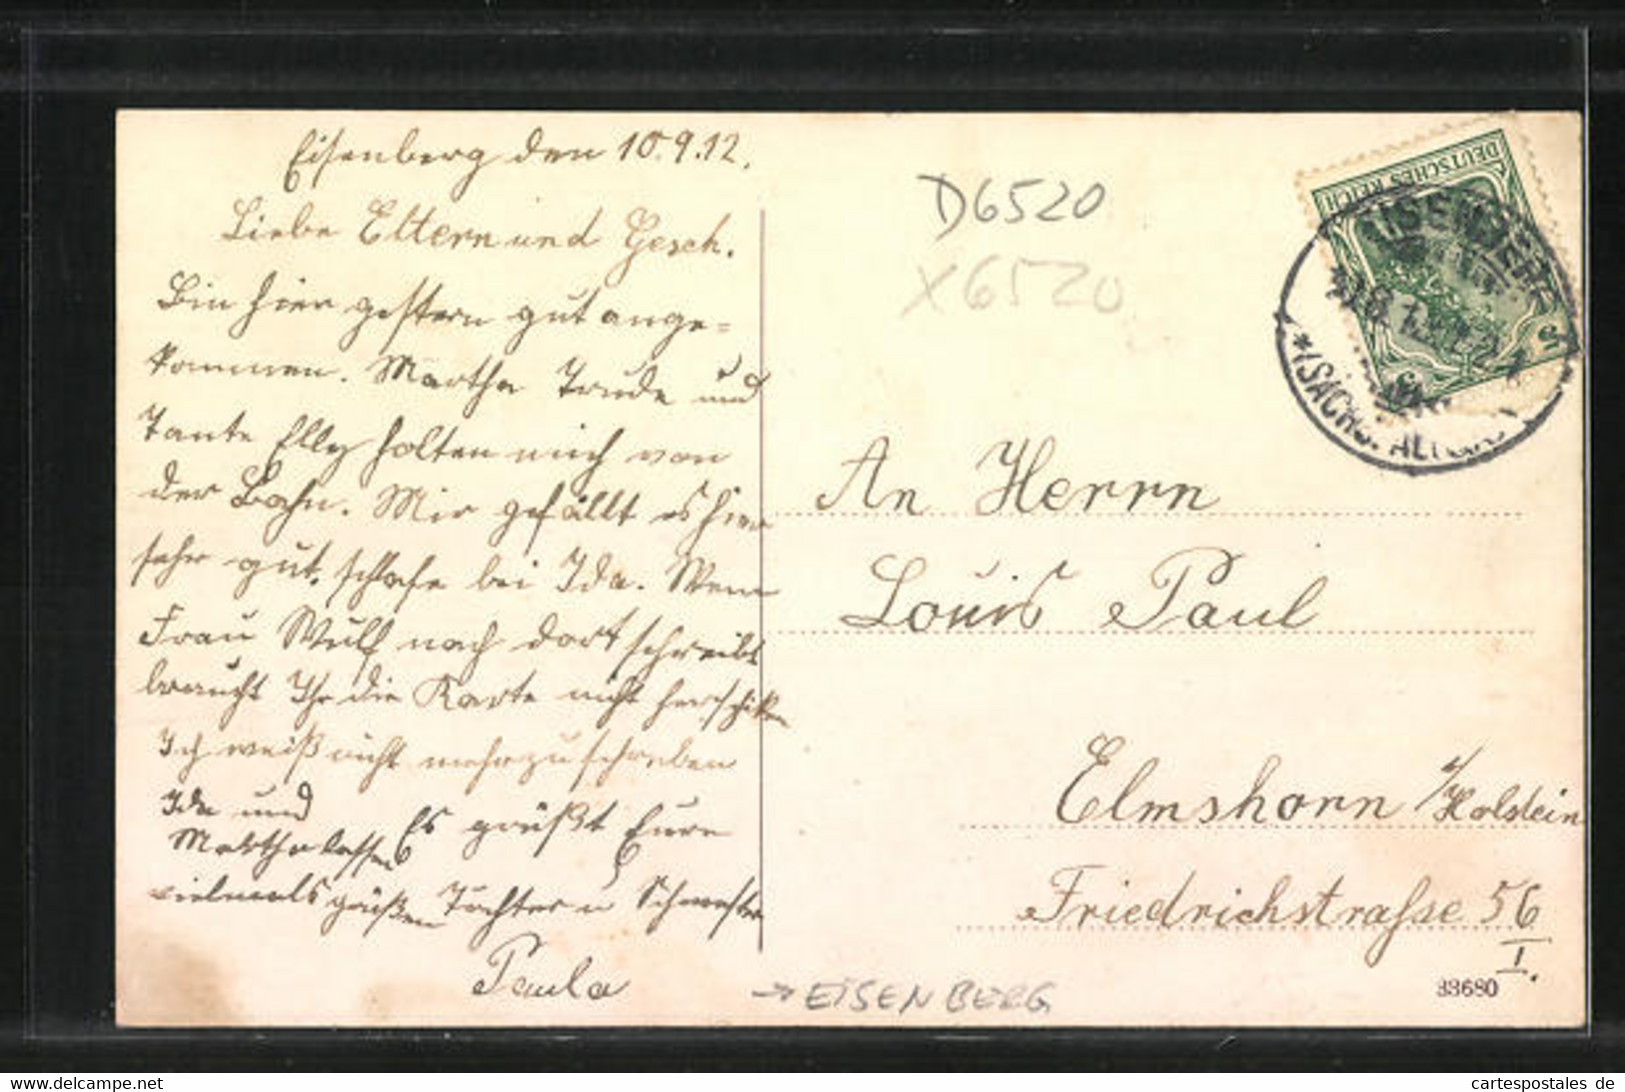 Eisenberg den 10.9.12.
Liebe Eltern und Gesch.
Bin hier gestern gut ange=
kommen. Martha Trude und
Tante Elly holten mich von
der Bahn. Mir gefällt es hier
sehr gut, schlafe bei Ida. Wenn
Frau Wulf nach dort schreibt
braucht Ihr die Karte nicht herschicken
Ich weiß nicht mehr zu schreiben
Ida und
Martha lassen
vielmals grüßen
Es grüßt Eure
Tochter u Schwester
Paula
D6520
X6520
DEUTSCHES REICH
5
EISENBERG
*(SACHS. ALTENB.)
An Herrn
Louis Paul
Elmshorn i/Holstein
Friedrichstrasse 56
I.
→ EISENBERG
33680
www.delcampe.net
cartespostales de